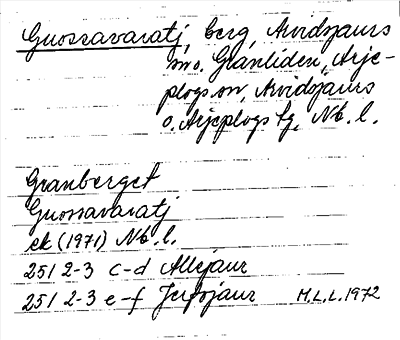 Guossavaratj, berg, Arvidsjaurs
sn o. Granliden, Arje-
plogs sn, Arvidsjaurs
o. Arjeplogs tg, Nb. l.
Granberget
Guossavaratj
ek (1971) Nb. l.
25I 2-3 c-d Allejaur
25I 2-3 e-f Jerfojaur M.L.L. 1972